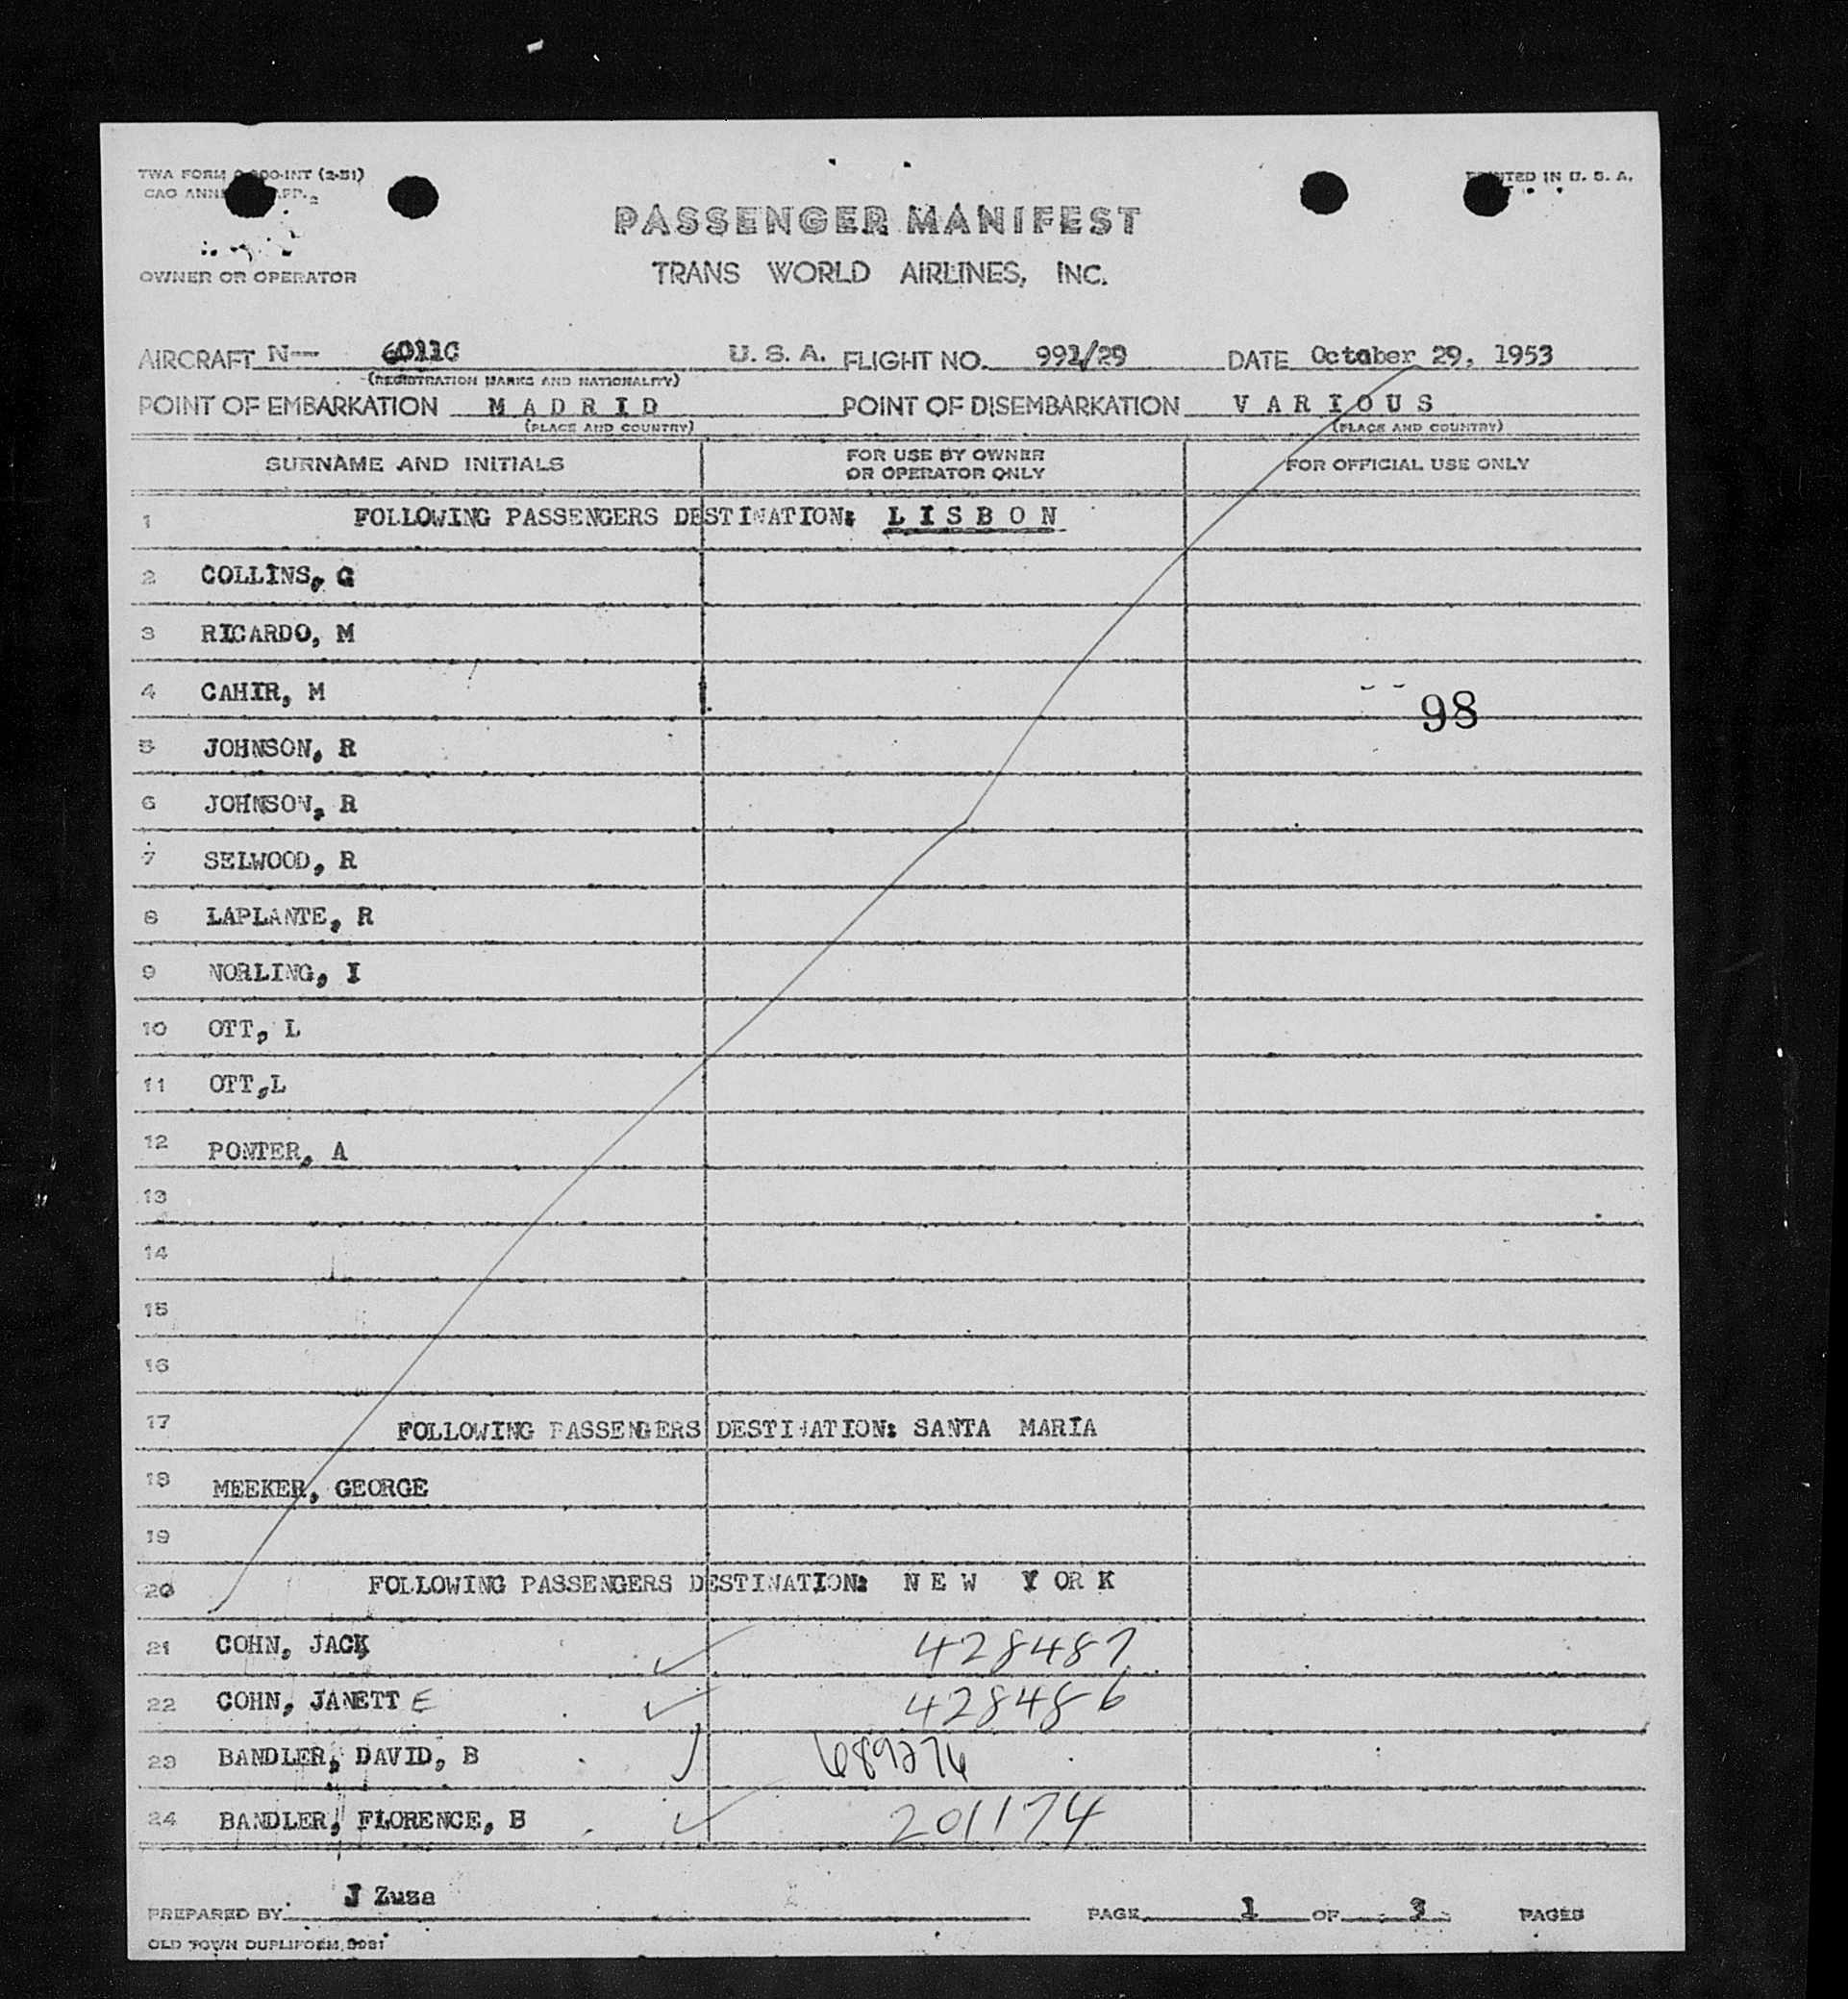 TWA FORM
PRINTED IN U. S. A.
PASSENGER MANIFEST
OWNER OR OPERATOR
TRANS WORLD AIRLINES, INC.
AIRCRAFT N-- 6011C U. S. A. FLIGHT NO. 991/29 DATE October 29, 1953
(REGISTRATION MARKS AND NATIONALITY)
POINT OF EMBARKATION M A D R I D POINT OF DISEMBARKATION V A R I O U S
(PLACE AND COUNTRY) (PLACE AND COUNTRY)
SURNAME AND INITIALS FOR USE BY OWNER OR OPERATOR ONLY FOR OFFICIAL USE ONLY
1 FOLLOWING PASSENGERS DESTINATION: L I S B O N
2 COLLINS, G
3 RICARDO, M
4 CAHIR, M
98
5 JOHNSON, R
6 JOHNSON, R
7 SELWOOD, R
8 LAPLANTE, R
9 NORLING, I
10 OTT, L
11 OTT,L
12 PONTER, A
13
14
15
16
17 FOLLOWING PASSENGERS DESTINATION: SANTA MARIA
18 MEEKER, GEORGE
19
20 FOLLOWING PASSENGERS DESTINATION: N E W Y OR K
21 COHN, JACK 428487
22 COHN, JANETT E 428486
23 BANDLER, DAVID, B 689276
24 BANDLER, FLORENCE, B 201174
J Zuza
PREPARED BY PAGE 1 OF 3 PAGES
OLD TOWN DUPLIFORM